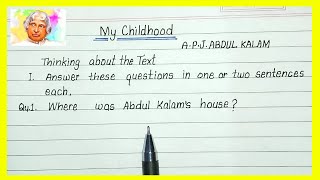 My Childhood
A.P.J. ABDUL KALAM
Thinking about the Text
I. Answer these questions in one or two sentences
each.
Qu1. Where was Abdul Kalam's house?